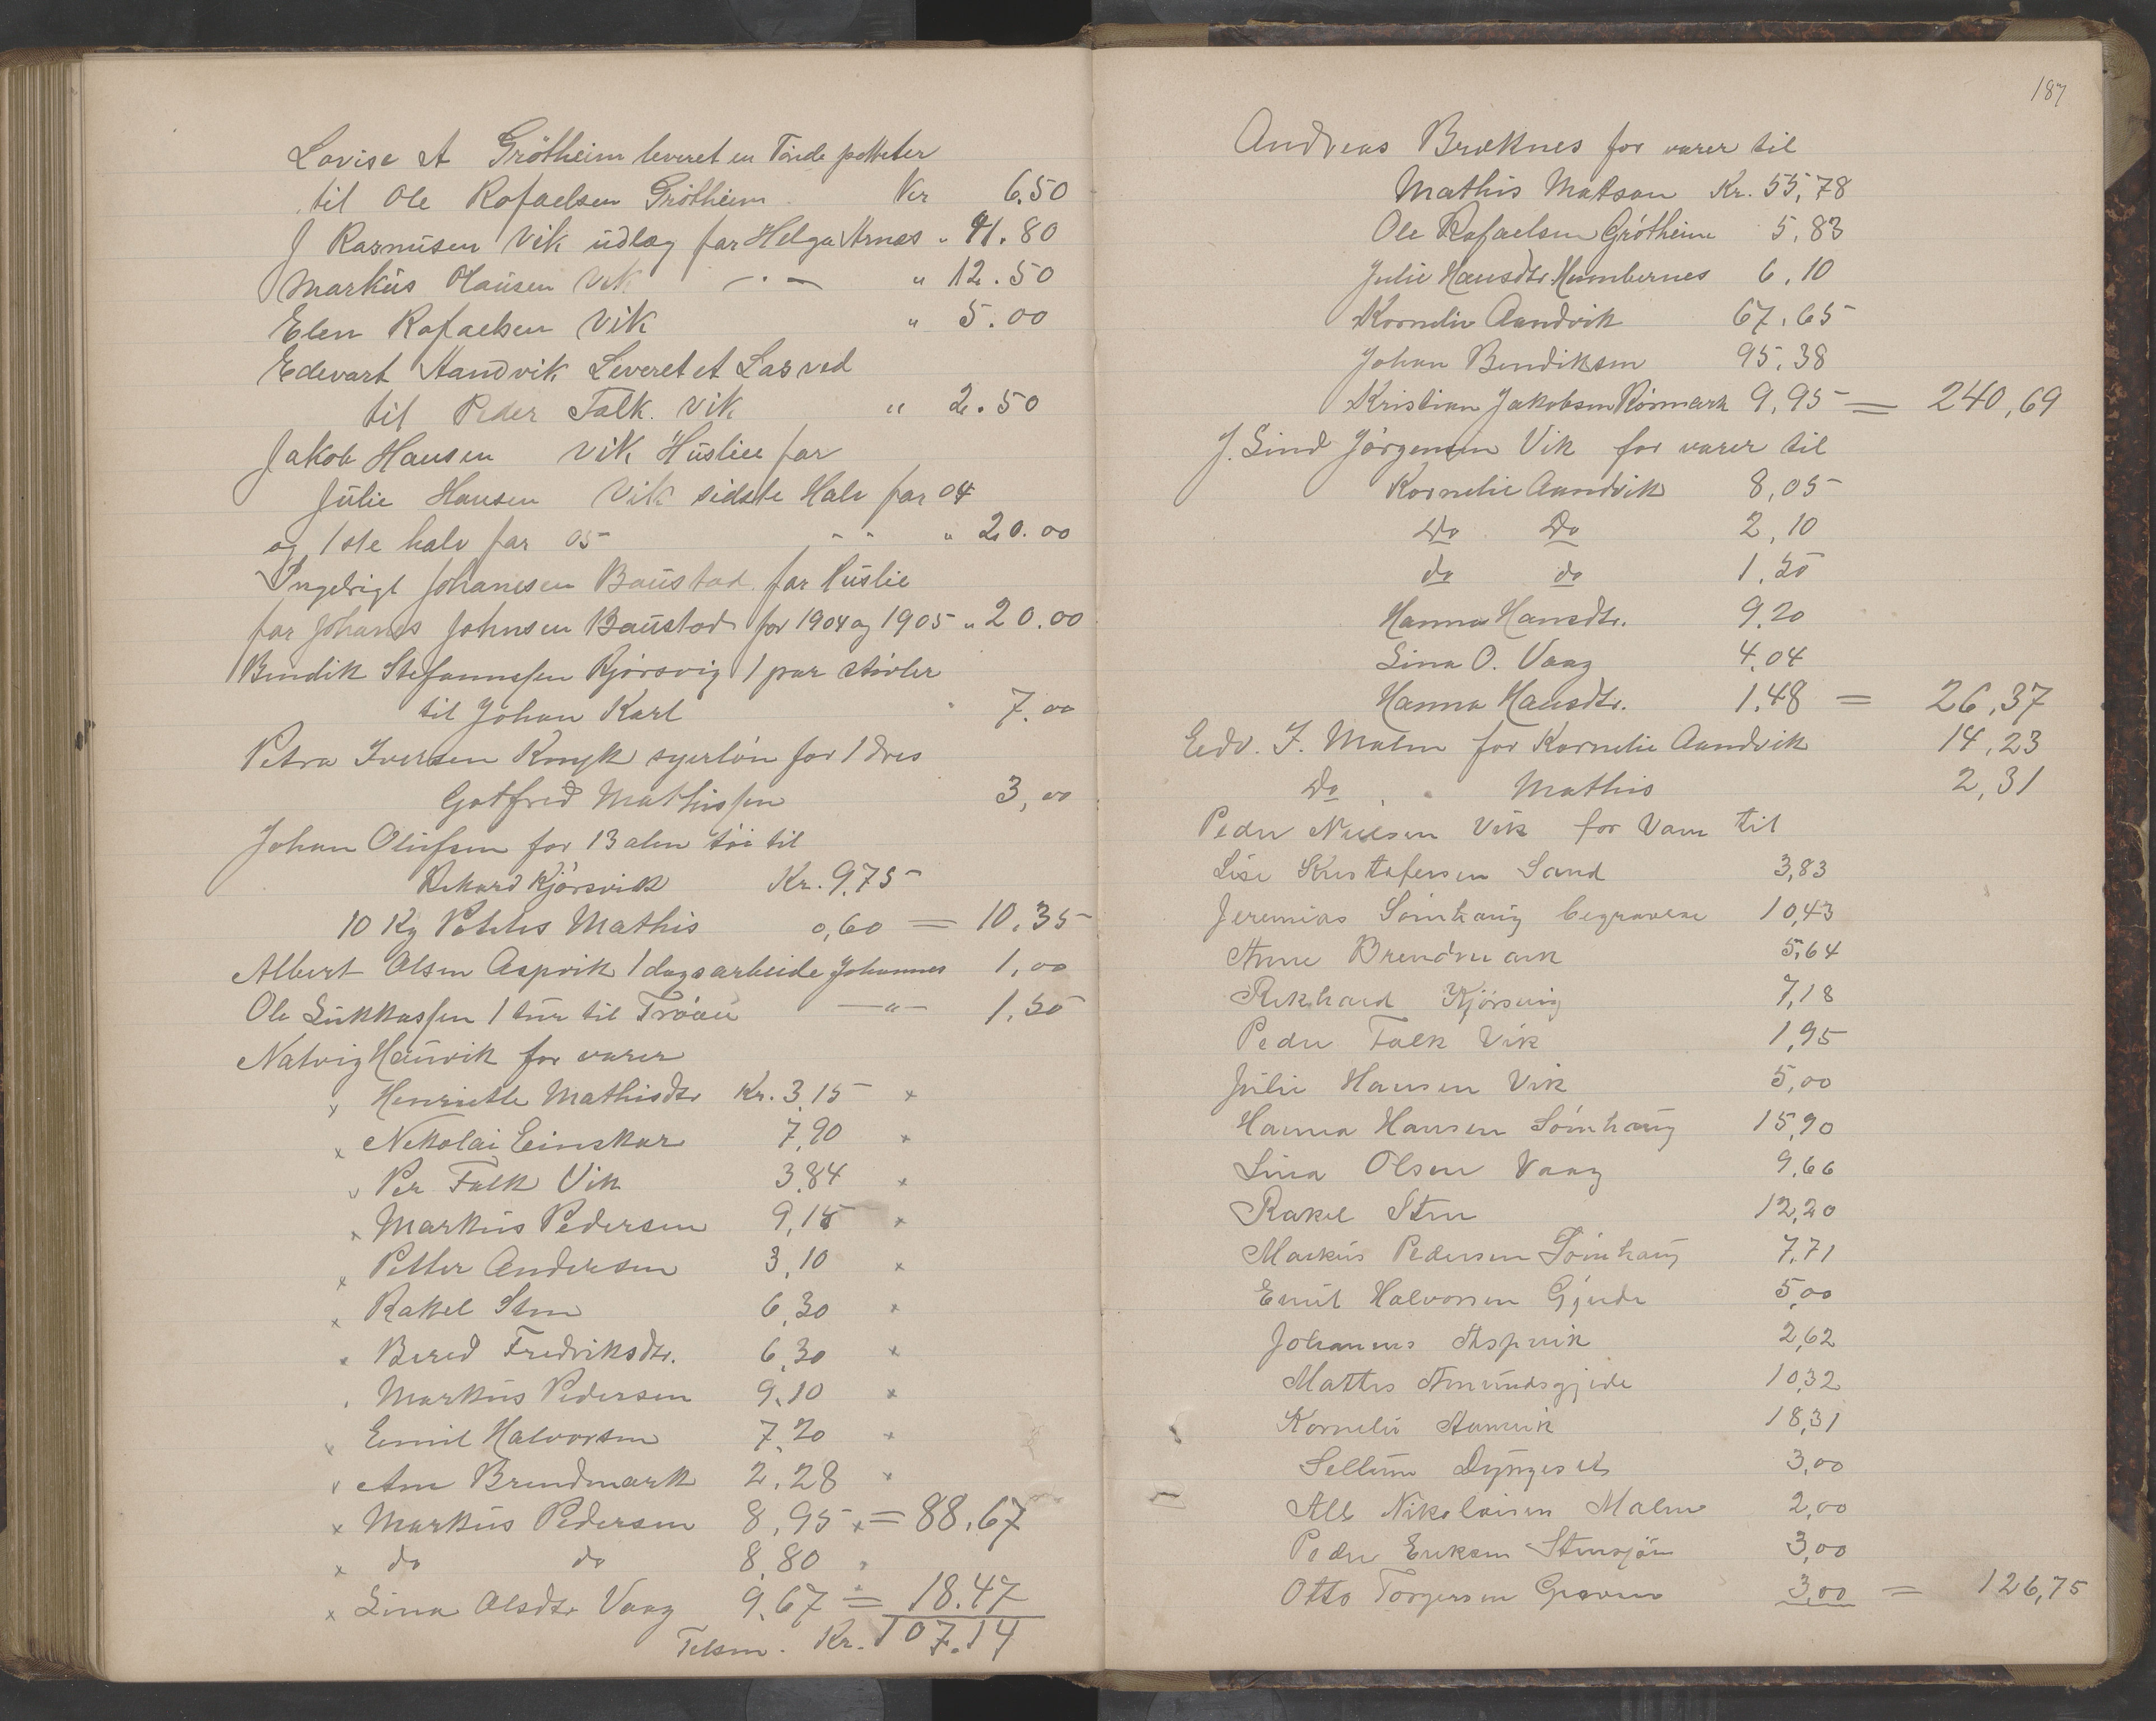 Lovise A Grötheim leveret en Tönde poteter
til Ole Rafaelsen Grötheim Kr 6.50
J Rasmusen Vik udlæg for Helga Arnes " 41.80
Markus Olausen Vik — · — " 12.50
Elen Rafaelsen Vik " 5.00
Edevart Aandvik Leveret et Las ved
til Peder Falk. Vik " 2.50
Jakob Hansen Vik Huslie for
Julie Hansen Vik sidste Halv for 04
og 1ste halv for 05 " " " 20.00
Ingebrigt Johanesen Baustad for Huslie
for Johanes Johnsen Baustad for 1904 og 1905 " 20.00
Bendik Stefanussen Kjörsvig 1 par stövler
til Johan Karl " 7.00
Petra Iversen syerlön for 1 dres
Gotfred Mathissen 3,00
Johan Olufsen for 13 alen töi til
Rikard Kjörsvik Kr. 9.75
10 Kg Potetes Mathis 0,60 = 10,35
Albert Olsen Aspvik 1 dagsarbeide Johannes 1,00
Ole Lukkassen 1 tur til — " — 1,50
Natvig Haurik for varer
x Henriette Mathisdtr Kr. 3,15 x
x Nekolai Einskar 7,90 x
v Per Falk Vik 3,84 x
x Markus Pedersen 9,15 x
x Petter Andersen 3,10 x
x Rakel Sten 6,30 x
x Bered Fredriksdtr. 6,30 x
. Markus Pedersen 9,10 x
x Emil Halvorsen 7,20 x
v Ane Brendmark 2,28 x
x Markus Pedersen 8,95 x = 88,67
x do do 8,80
x Lina Olsdtr Vaag 9,67 = 18.47
Tilsm. Kr. 107.14
187
Andreas Bræknes for varer til
Mathis Matson Kr. 55,78
Ole Rafaelsen Grötheim 5,83
Julie Hansdtr. Humbernes 6,10
Kornelie Aandvik 67,65
Johan Bendiksen 95,38
Kristian Jakobsen 9,95 = 240,69
J. Lind Jörgensen Vik for varer til
Kornelie Aandvik 8,05
Do Do 2,10
do do 1,50
Hanna Hansdtr. 9,20
Lina O. Vaag 4,04
Hanna Hansdtr. 1,48 = 26,37
Edv. J. Malm for Kornelie Aandvik 14,23
Do Mathis 2,31
Peder Nielsen Vik for Varer til
Lise Kristofersen Sand 3,83
Jeremias Sömhaug begravelse 10,43
Anne Brendmark 5,64
Rikhard Kjörsvig 7,18
Peder Falk Vik 1,95
Julie Hansen Vik 5,00
Hanna Hansen Sömhaug 15,90
Lina Olsen Vaag 9,66
Rakel Sten 12,20
Markus Pedersen Sömhaug 7,71
Emil Halvorsen Gjerde 5,00
Johannes Aspvik 2,62
Mattis Amundsgjerde 10,32
Kornelie Aanvik 18,31
Dyrneset 3,00
Alb Nikolaisen Malm 2,00
Peder Eriksen 3,00
Otto Torgersen 3,00 = 126,75